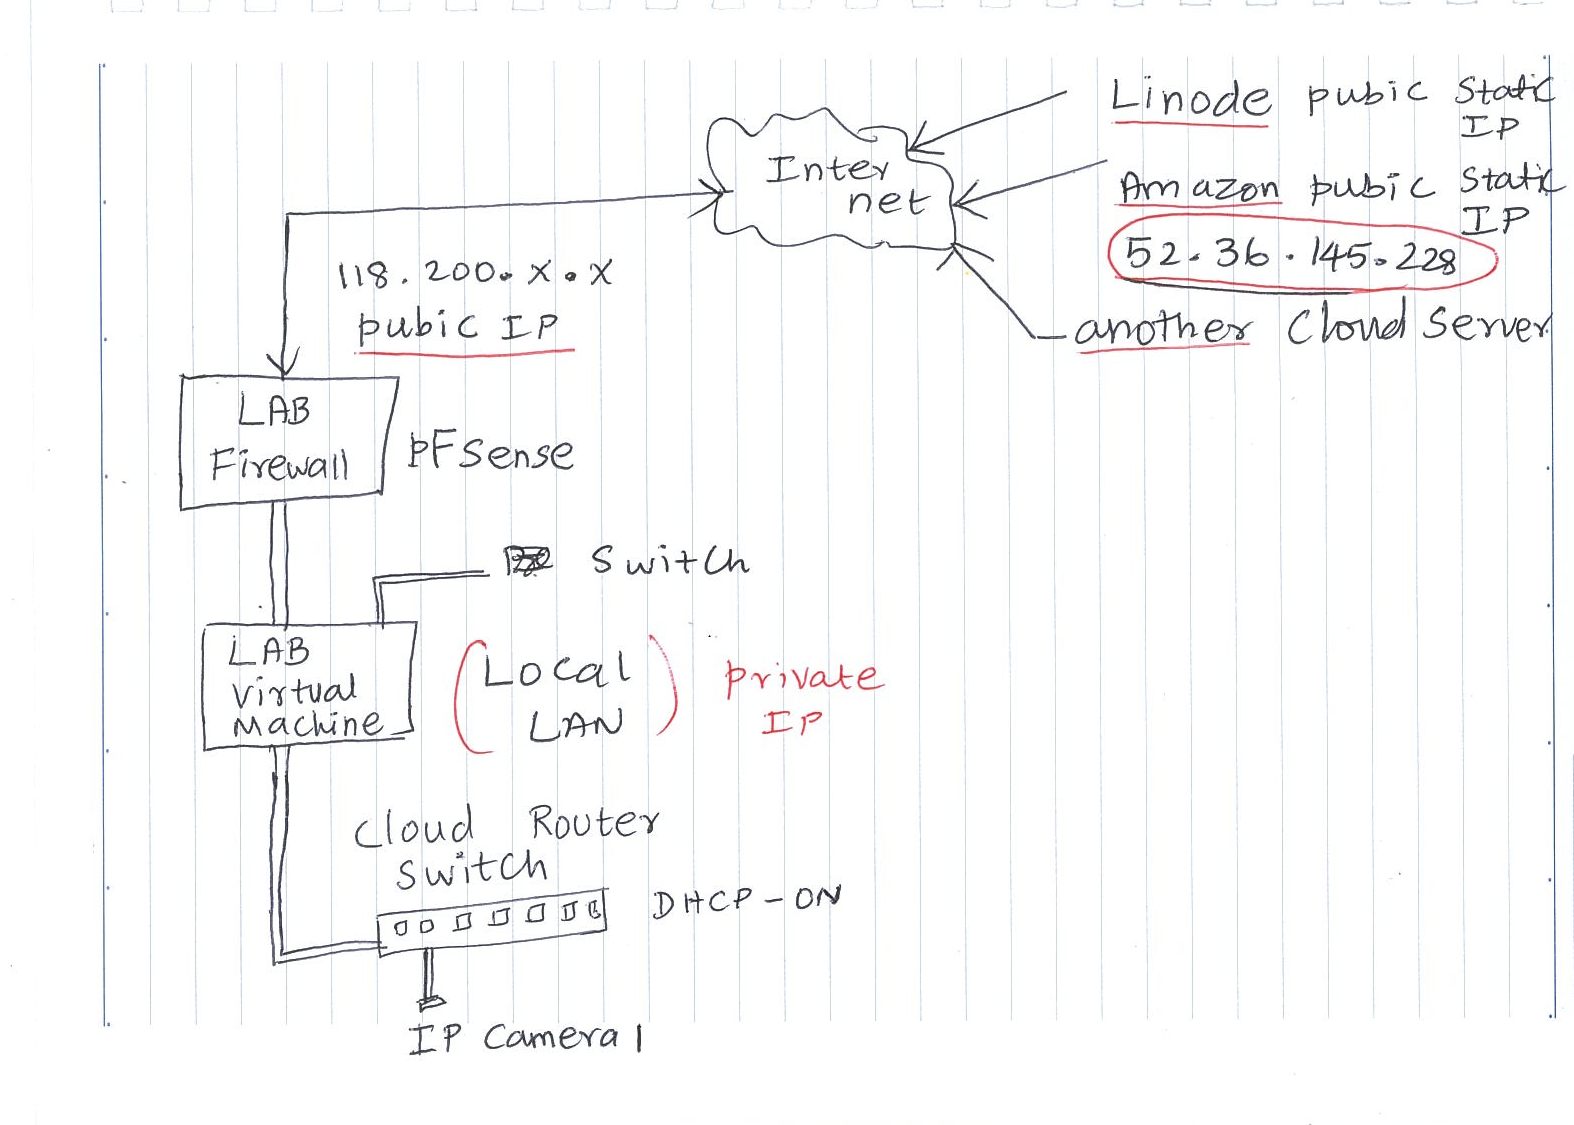 Linode pubic Static
IP
Inter
net
Amazon pubic Static
IP
52.36.145.228
another Cloud Server
118.200.X.X
pubic IP
LAB
Firewall
pFsense
Switch
LAB
Virtual
Machine
(Local
LAN)
private
IP
Cloud Router
Switch
DHCP-ON
IP Camera 1